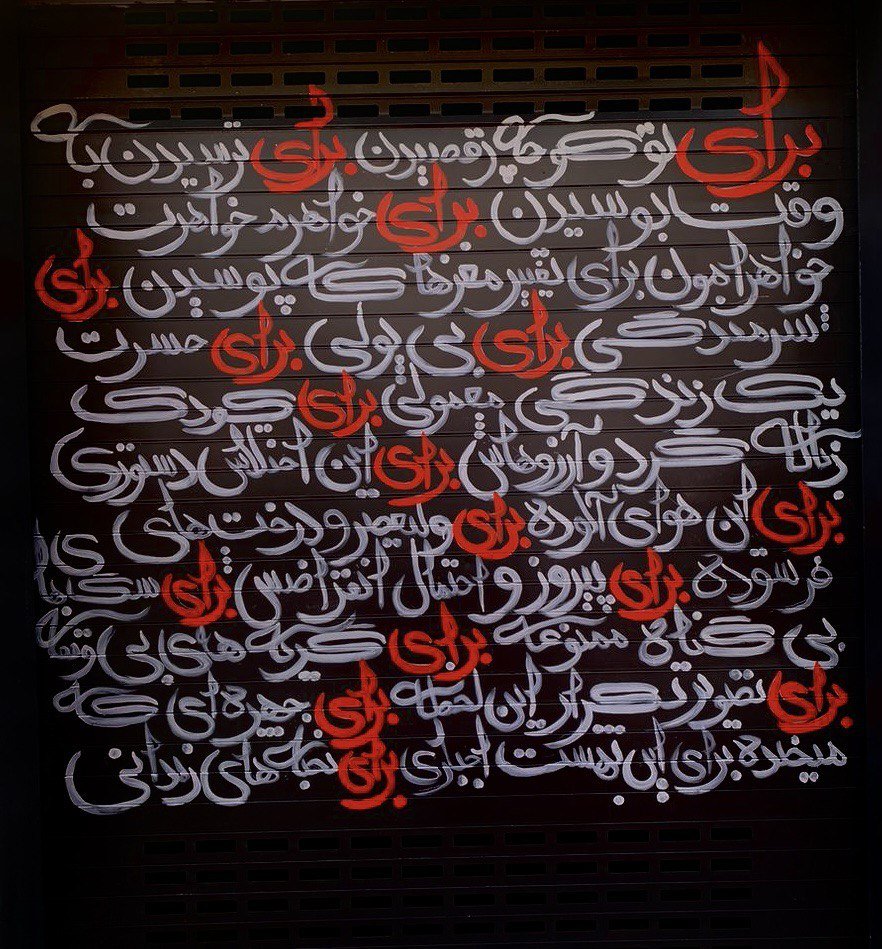 برای تو کوچه رقصیدن برای ترسیدن به
وقت بوسیدن برای خواهرم خواهرت
خواهرامون برای تغییر مغزها که پوسیدن برای
شرمندگی برای بی پولی برای حسرت
یک زندگی معمولی برای کودک
زباله گرد و آرزوهاش برای این اختلاس دستوری
برای این هوای آلوده برای ولیعصر و درخت های
فرسوده برای پیروز و احتمال انقراضش برای سگ های
بی گناه ممنوعه برای گریه های بی وقفه
برای تصویر تکرار این لحظه برای چهره ای که
میخنده برای این بهشت اجباری برای نخبه های زندانی